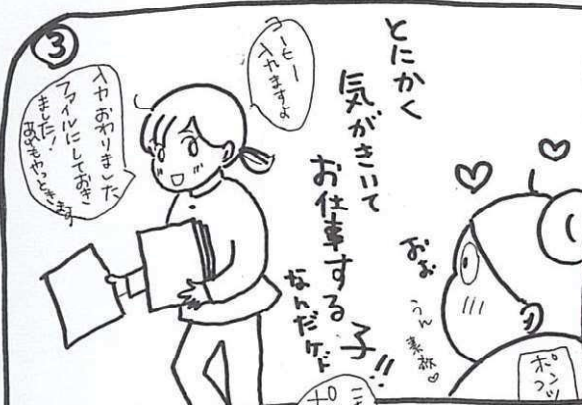 ③
とにかく
気がきいて
お仕事する子!!
なんだケド
コーヒー
入れますよ
入力おわりました
ファイルにしておき
ました!
あれもやっときます
おぉ
うん素敵♡
ポンコツ